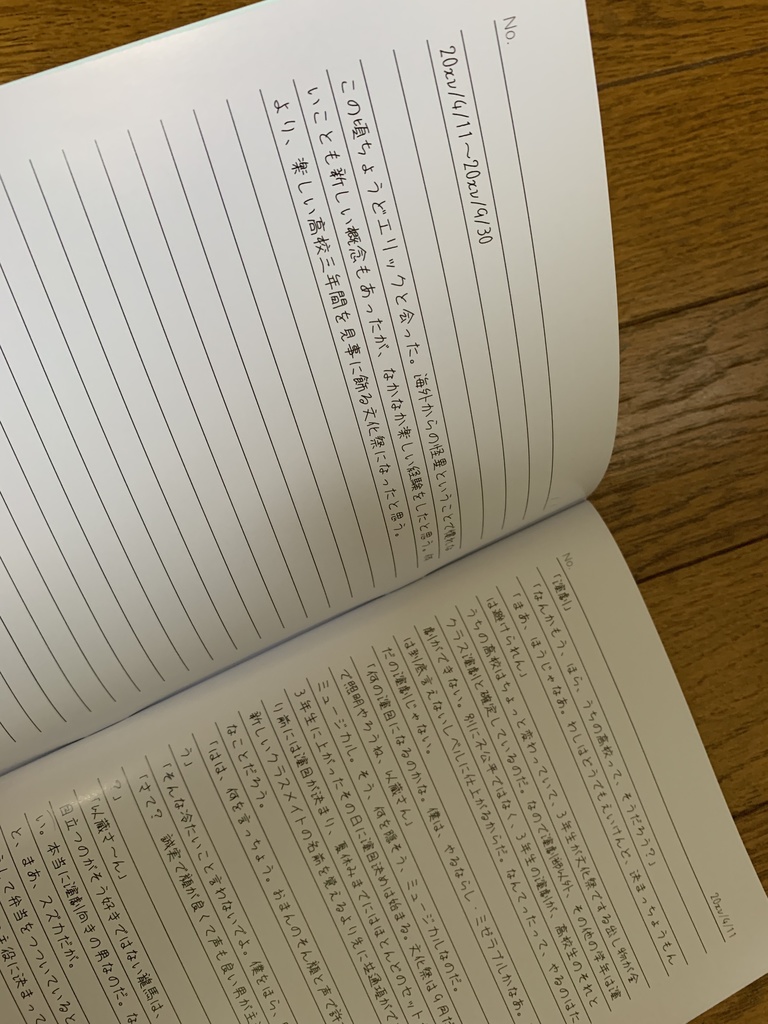 No.
20xv/4/11～20xv/9/30
この頃ちょうどエリックと会った。海外からの怪異ということで慣れな
いことも新しい概念もあったが、なかなか楽しい経験をしたと思う。何
より、楽しい高校三年間を見事に飾る文化祭になったと思う。
No.
20xv/4/11
「演劇」
「なんかもう、ほら、うちの高校って、そうだろう？」
「まあ、ほうじゃなあ。わしはどうでもえいけんど、決まっちょうもん
は避けられん」
うちの高校はちょっと変わっていて、3年生が文化祭でする出し物が全
クラス演劇と確定しているのだ。なので演劇部以外、その他の学年は演
劇ができない。別に不公平ではなく、3年生の演劇が、高校生のそれと
は到底言えないレベルに仕上がるからだ。なんてったって、やるのはた
だの演劇じゃない。
「何の演目になるのかな。僕は、やるならレ・ミゼラブルかなあ。
で照明やろうね、以蔵さん」
ミュージカル。そう、何を隠そう、ミュージカルなのだ。
3年生に上がったその日に演目決めは始まる。文化祭は9月だ
り前には演目が決まり、夏休みまでにはほとんどのセット
新しいクラスメイトの名前を覚えるより先に
なことだろう。
「はは、何を言っちょう。おまんのそん顔と声で許
う」
「そんな冷たいこと言わないでよ。僕をほら、
「さて？　誠実で顔が良くて声も良い男が主
？」
「以蔵さ～ん」
目立つのがそう好きではない龍馬は、
い。本当に演劇向きの男なのだ。な
と、まあ、スズカだが。
して弁当をつついていると
主役に決まって